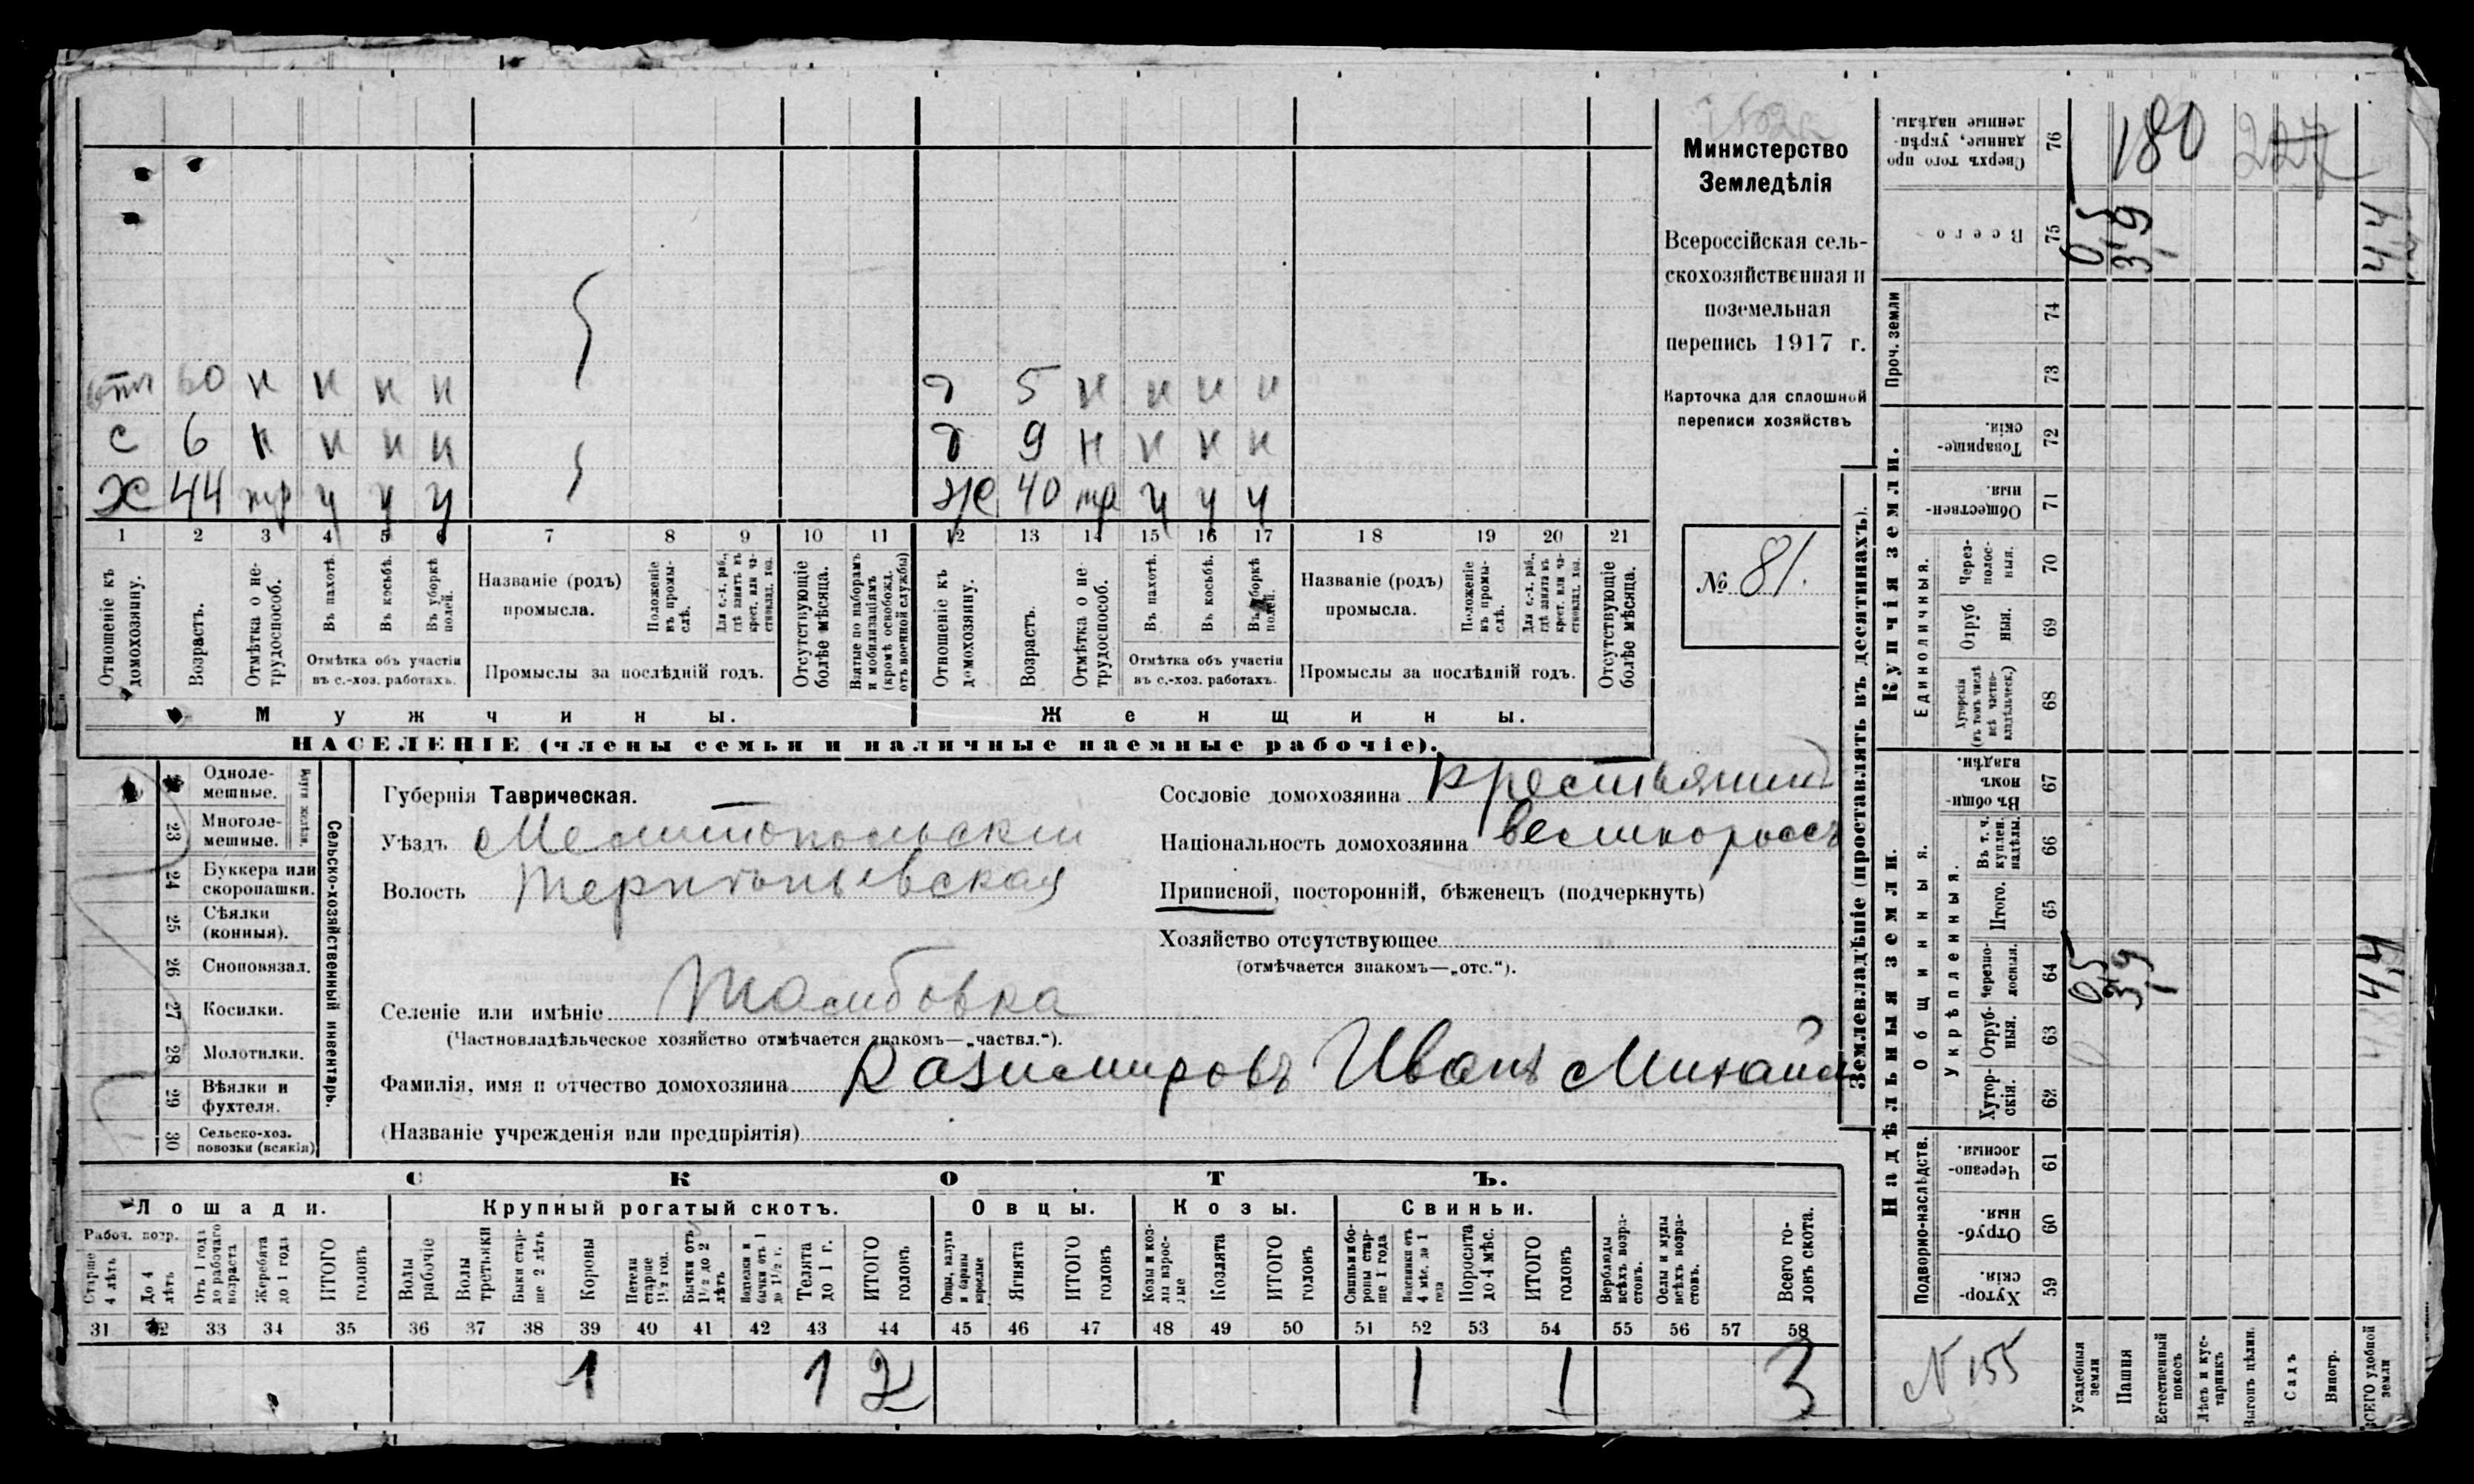 отц 60 н н н н
д 5 н н н н
с 6 н н н н
д 9 н н н н
Х 44 тр у у у
Ж 40 тр у у у
1 2 3 4 5 6 7 8 9 10 11 12 13 14 15 16 17 18 19 20 21
Отношеніе къ домохозяину.
Возрастъ.
Отмѣтка о не-трудоспособ.
Въ пахотѣ.
Въ косьбѣ.
Въ уборкѣ полей.
Отмѣтка объ участіи
въ с.-хоз. работахъ.
Названіе (родъ)
промысла.
Положеніе въ промы-слѣ.
Для с.-х. раб., гдѣ занятъ въ крест. или ча-стновлад. хоз.
Промыслы за послѣдній годъ.
Отсутствующіе болѣе мѣсяца.
Взятые по наборамъ и мобилизаціямъ (кромѣ освобожд. отъ военной службы)
Отношеніе къ домохозяину.
Возрастъ.
Отмѣтка о не-трудоспособ.
Въ пахотѣ.
Въ косьбѣ.
Въ уборкѣ полей.
Отмѣтка объ участіи
въ с.-хоз. работахъ.
Названіе (родъ)
промысла.
Положеніе въ промы-слѣ.
Для с.-х. раб., гдѣ занята въ крест. или ча-стновлад. хоз.
Промыслы за послѣдній годъ.
Отсутствующіе болѣе мѣсяца.
Мужчины.
Женщины.
НАСЕЛЕНІЕ (члены семьи и наличные наемные рабочіе).
Министерство
Земледѣлія
Всероссійская сель-
скохозяйственная и
поземельная
перепись 1917 г.
Карточка для сплошной
переписи хозяйствъ
№ 81.
Одноле-
мешные.
23 Многоле-
мешные.
24 Буккера или
скоропашки.
25 Сѣялки
(конныя).
26 Сноповязал.
27 Косилки.
28 Молотилки.
29 Вѣялки и
фухтеля.
30 Сельско-хоз.
повозки (всякія)
Сельско-хозяйственный инвентарь.
Губернія Таврическая.
Уѣздъ Мелитопольскій
Волость Терпѣньевская
Селеніе или имѣніе Тамбовка
(Частновладѣльческое хозяйство отмѣчается знакомъ—„частвл.“).
Фамилія, имя и отчество домохозяина Казимировъ Иванъ Михайл
(Названіе учрежденія или предпріятія)
Сословіе домохозяина крестьянинъ
Національность домохозяина великороссъ
Приписной, посторонній, бѣженецъ (подчеркнуть)
Хозяйство отсутствующее
(отмѣчается знакомъ—„отс.“).
СКОТЪ.
Лошади.
Крупный рогатый скотъ.
Овцы.
Козы.
Свиньи.
Рабоч. возр.
Старше 4 лѣтъ
До 4 лѣтъ
Отъ 1 года до рабочаго возраста
Жеребята до 1 года
ИТОГО головъ
Волы рабочіе
Волы третьяки
Быки стар-ше 2 лѣтъ
Коровы
Нетели старше 1½ год.
Бычки отъ 1½ до 2 лѣтъ
Нетелки и бычки отъ 1 до 1½ г.
Телята до 1 г.
ИТОГО головъ
Овцы, валухи и бараны взрослые
Ягнята
ИТОГО головъ
Козы и коз-лы взрос-лые
Козлята
ИТОГО головъ
Свиньи и бо-ровы стар-ше 1 года
Подсвинки отъ 4 мѣс. до 1 года
Поросята до 4 мѣс.
ИТОГО головъ
Верблюды всѣхъ возра-стовъ.
Ослы и мулы всѣхъ возра-стовъ.
Всего го-ловъ скота.
31 32 33 34 35 36 37 38 39 40 41 42 43 44 45 46 47 48 49 50 51 52 53 54 55 56 57 58
1 1 2 1 1 3
Землевладѣніе (проставлять въ десятинахъ).
Сверхъ того про-даные, укрѣп-ленные надѣлы. 76 180 227
Всего 75 05 3,9 44
Купчія земли.
Проч. земли 74
73
Товарище-скія. 72
Обществен-ныя. 71
Единоличныя.
Через-полос-ныя. 70
Отруб-ныя. 69
Хуторскія (въ томъ числѣ всѣ частно-владѣльческ.) 68
Надѣльныя земли.
Общинныя.
Въ общи-номъ владѣн. 67
Укрѣпленныя.
Въ т. ч. куплен. надѣлы. 66
Итого. 65
Черезпо-лосныя. 64 05 3,9 4,4
Отруб-ныя. 63
Хутор-скія. 62
Подворно-наслѣдств.
Черезпо-лосныя 61
Отруб-ныя. 60
Хутор-скія. 59
N 155
Усадебныя земли
Пашня
Естественный покосъ
Лѣсъ и кус-тарникъ
Выгонъ цѣлин.
Садъ
Виногр.
ВСЕГО удобной земли